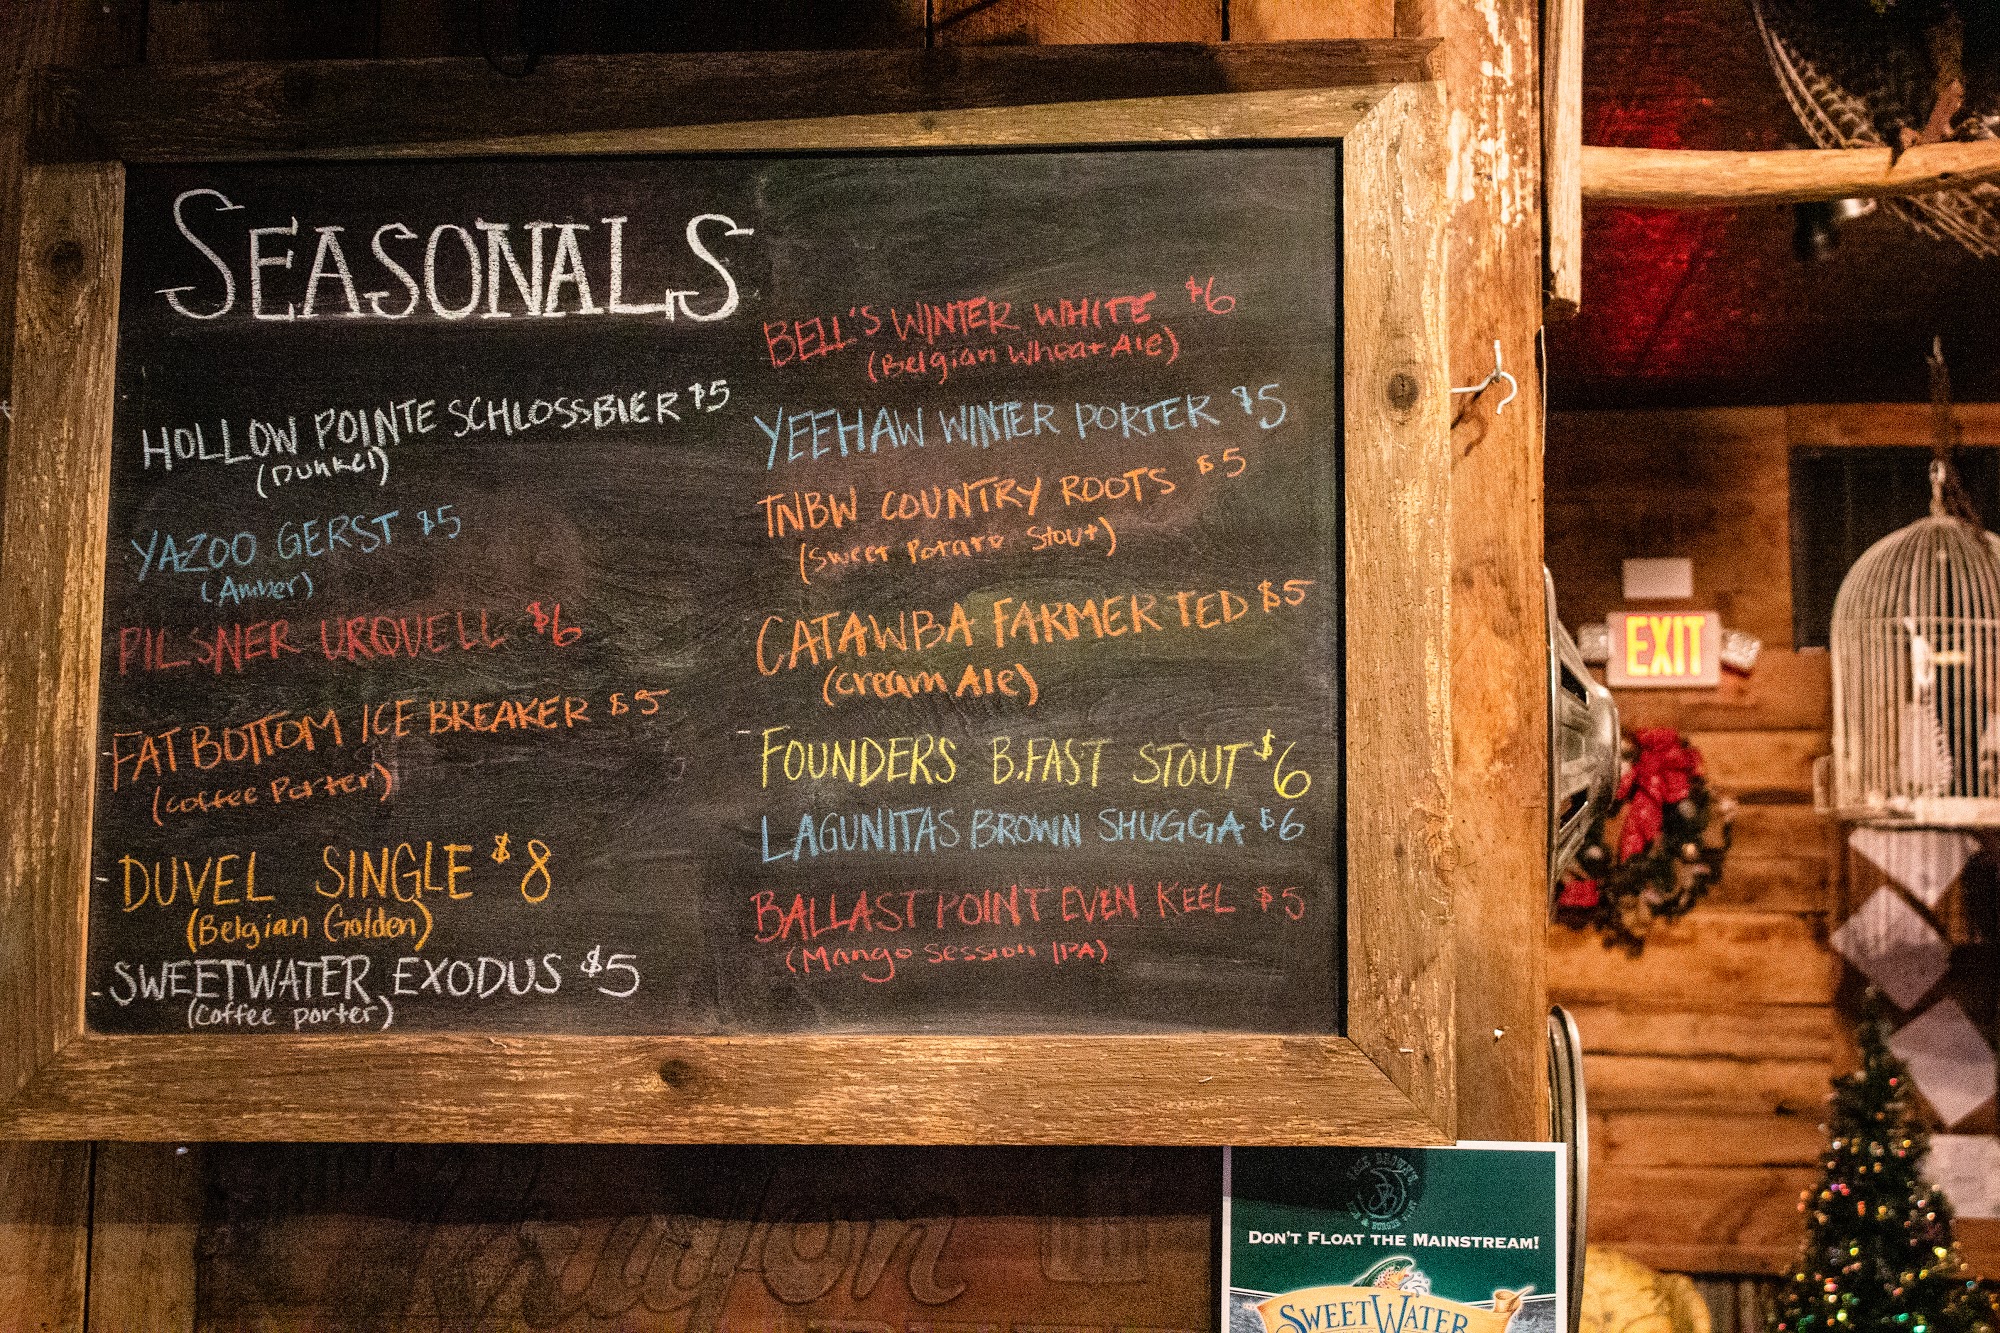 SEASONALS
HOLLOW POINTE SCHLOSSBIER $5
(Dunkel)
YAZOO GERST $5
(Amber)
PILSNER URQUELL $6
FATBOTTOM ICE BREAKER $5
(Coffee Porter)
DUVEL SINGLE $8
(Belgian Golden)
SWEETWATER EXODUS $5
(Coffee porter)
BELL'S WINTER WHITE $6
(Belgian Wheat Ale)
YEEHAW WINTER PORTER $5
TNBW COUNTRY ROOTS $5
(Sweet Potato Stout)
CATAWBA FARMER TED $5
(Cream Ale)
FOUNDERS B.FAST STOUT $6
LAGUNITAS BROWN SHUGGA $6
BALLAST POINT EVEN KEEL $5
(Mango Session IPA)
EXIT
DON'T FLOAT THE MAINSTREAM!
SWEETWATER